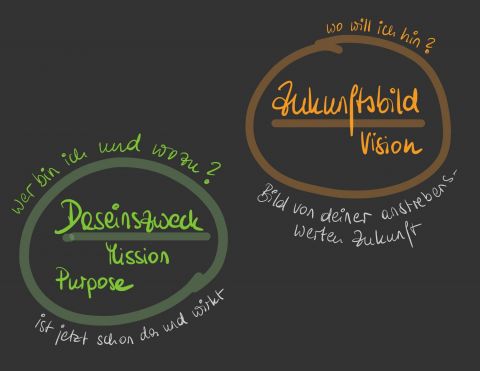 wo will ich hin?
Zukunftsbild
Vision
Bild von deiner anstrebens-
werten Zukunft
wer bin ich und wozu?
Daseinszweck
Mission
Purpose
ist jetzt schon da und wirkt